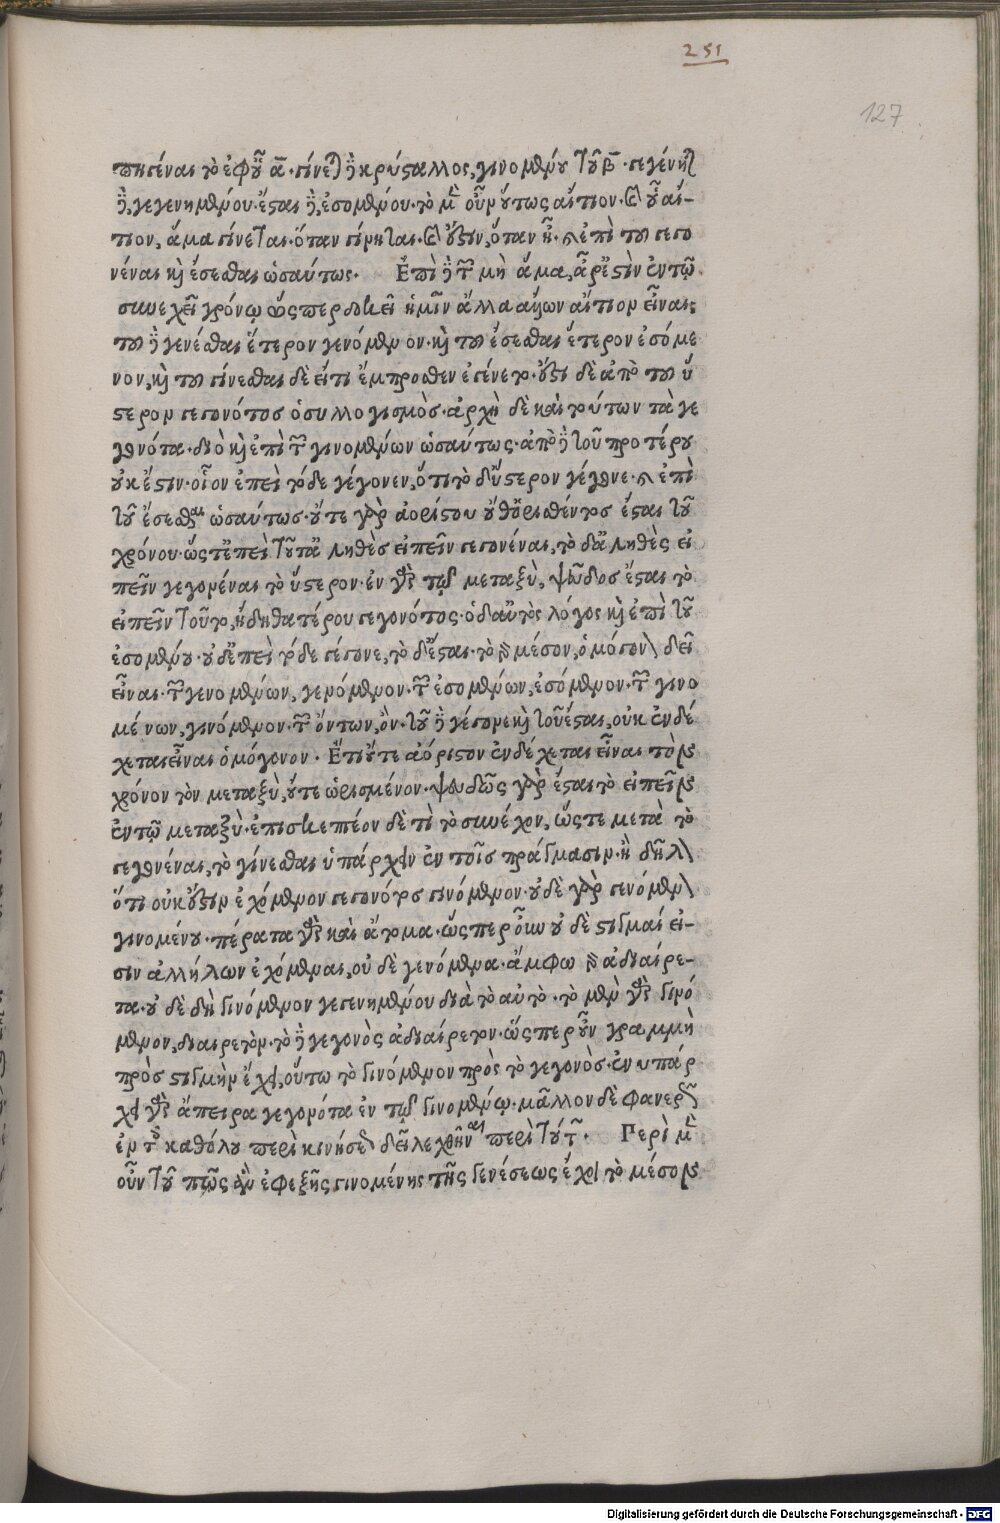 251
127
πηγέναι τὸ ἐφ' οὗ α. γίνεται δὲ κρύσταλλος, γινομένου τοῦ β. γεγένηται
δὲ, γεγενημένου. ἔσται δὲ, ἐσομένου. τὸ μὲν οὖν οὕτως αἴτιον. καὶ οὗ αἴ-
τιον, ἅμα γίνεται. ὅταν γίνηται. καὶ ἔστιν, ὅταν ᾖ. καὶ ἐπὶ τοῦ γεγο
νέναι καὶ ἔσεσθαι ὡσαύτως. Ἐπὶ δὲ τῶν μὴ ἅμα, ἆρ' ἔστὶν ἐν τῷ
συνεχεῖ χρόνῳ ὥσπερ δοκεῖ ἡμῖν ἄλλα ἄλλων αἴτιον εἶναι;
τοῦ δὲ γενέσθαι ἕτερον γενόμενον. καὶ τοῦ ἔσεσθαι ἕτερον ἐσόμε
νον, καὶ τοῦ γίνεσθαι δὲ εἴτι ἔμπροσθεν ἐγένετο. ἔστι δὲ ἀπὸ τοῦ ὕ
στερον γεγονότος ὁ συλλογισμὸς. ἀρχὴ δὲ καὶ τούτων τὰ γε
γονότα. διὸ καὶ ἐπὶ τῶν γινομένων ὡσαύτως. ἀπὸ δὲ τοῦ προτέρου
οὐκ ἔστιν. οἷον ἐπεὶ τόδε γέγονεν, ὅτι τὸ δ' ὕστερον γέγονε. καὶ ἐπὶ
τοῦ ἔσεσθαι ὡσαύτως. οὔτε γὰρ ἀορίστου οὔθ' ὁρισθέντος ἔσται τοῦ
χρόνου. ὥστ' ἐπεὶ τοῦτ' ἀληθὲς εἰπεῖν γεγονέναι, τὸ δ' ἀληθὲς εἰ
πεῖν γεγονέναι τὸ ὕστερον. ἐν γὰρ τῷ μεταξὺ, ψεῦδος ἔσται τὸ
εἰπεῖν τοῦτο, ἤδη θατέρου γεγονότος. ὁ δ' αὐτὸς λόγος καὶ ἐπὶ τοῦ
ἐσομένου. οὐδ' ἐπεὶ τόδε γέγονε, τὸ δ' ἔσται. τὸ γὰρ μέσον, ὁμόγονον δεῖ
εἶναι. τῶν γενομένων, γενόμενον. τῶν ἐσομένων, ἐσόμενον. τῶν γινο
μένων, γινόμενον. τῶν ὄντων, ὄν. τοῦ δὲ γέγονε καὶ τοῦ ἔσται, οὐκ ἐνδέ
χεται εἶναι ὁμόγονον. Ἔτι οὔτε ἀόριστον ἐνδέχεται εἶναι τὸν
χρόνον τὸν μεταξὺ, οὔτε ὡρισμένον. ψευδῶς γὰρ ἔσται τὸ εἰπεῖν
ἐν τῷ μεταξὺ. ἐπισκεπτέον δὲ τὶ τὸ συνέχον, ὥστε μετὰ τὸ
γεγονέναι, τὸ γίνεσθαι ὑπάρχειν ἐν τοῖς πράγμασιν. ἢ δῆλον
ὅτι οὐκ ἔστιν ἐχόμενον γεγονότος γινόμενον. οὐδὲ γὰρ γενόμενον
γινομένου. πέρατα γὰρ καὶ ἄτομα. ὥσπερ οὖν οὐδὲ στιγμαί εἰ-
σιν ἀλλήλων ἐχόμεναι, οὐδὲ γενόμενα. ἄμφω γὰρ ἀδιαίρε-
τα. οὐδὲ δὴ γινόμενον γεγενημένου διὰ τὸ αὐτό. τὸ μὲν γὰρ γινό
μενον, διαιρετὸν. τὸ δὲ γεγονὸς ἀδιαίρετον. ὥσπερ οὖν γραμμὴ
πρὸς στιγμὴν ἔχει, οὕτω τὸ γινόμενον πρὸς τὸ γεγονὸς. ἐνυπάρ
χει γὰρ ἄπειρα γεγονότα ἐν τῷ γινομένῳ. μᾶλλον δὲ φανερῶς
ἐν τοῖς καθόλου περὶ κινήσεως δεῖ λεχθῆναι περὶ τούτων. Περὶ μὲν
οὖν τοῦ πῶς ἂν ἐφεξῆς γινομένης τῆς γενέσεως ἔχοι τὸ μέσον
Digitalisierung gefördert durch die Deutsche Forschungsgemeinschaft - DFG